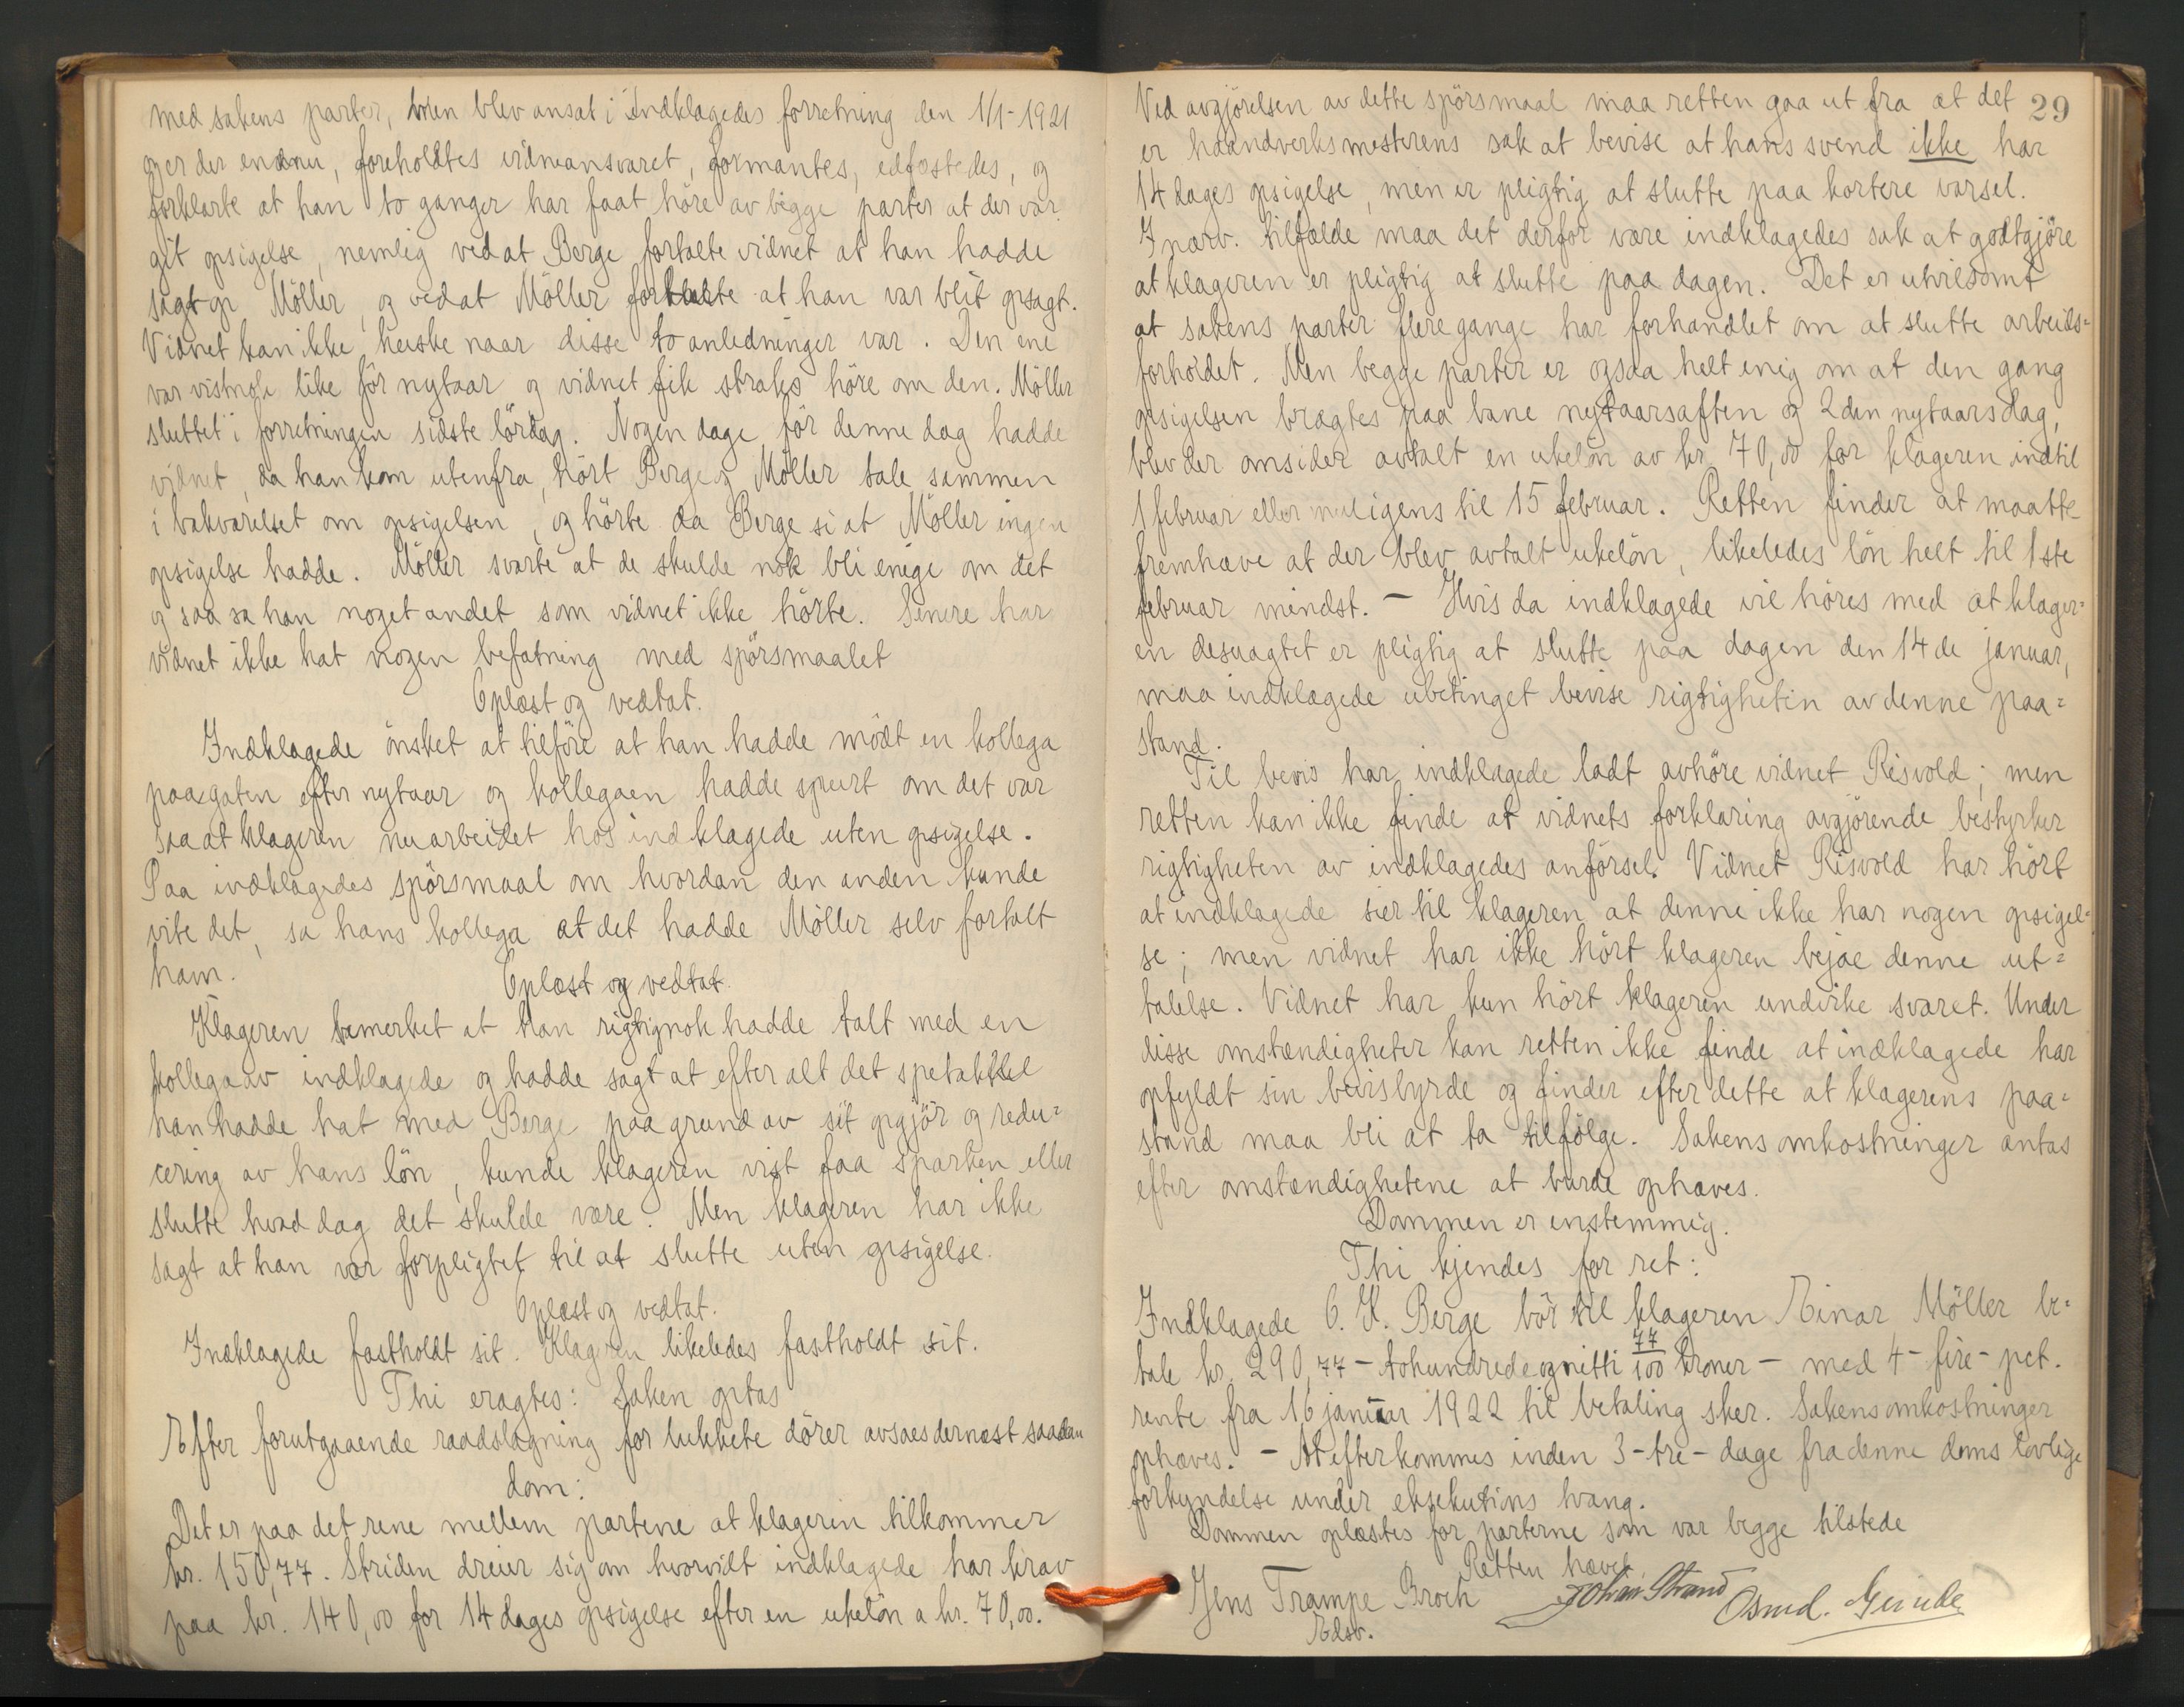 med sakens parter, men blev ansat i indklagedes forretning den 1/1-1921
og er der endnu, foreholdtes vidneansvaret, formantes, edfæstedes, og
forklarte at han to ganger har faat höre av begge parter at der var
git opsigelse, nemlig ved at Berge fortalte vidnet at han hadde
sagt op Möller, og ved at Möller fortalte at han var blit opsagt.
Vidnet kan ikke huske naar disse to anledninger var. Den ene
var vistnok like för nytaar og vidnet fik straks höre om den. Möller
sluttet i forretningen sidste lördag. Nogen dage för denne dag hadde
vidnet, da han kom utenfra, hört Berge og Möller tale sammen
i bakværelset om opsigelsen, og hörte da Berge si at Möller ingen
opsigelse hadde. Möller svarte at de skulde nok bli enige om det
og saa sa han noget andet som vidnet ikke hörte. Senere har
vidnet ikke hat nogen befatning med spörsmaalet
Oplæst og vedtat.
Indklagede önsket at tilföre at han hadde mödt en kollega
paa gaten efter nytaar og kollegaen hadde spurt om det var
saa at klageren nu arbeidet hos indklagede uten opsigelse.
Paa indklagedes spörsmaal om hvordan den anden kunde
vite det, sa hans kollega at det hadde Möller selv fortalt
ham.
Oplæst og vedtat.
Klageren bemerket at han rigtignok hadde talt med en
kollega av indklagede og hadde sagt at efter alt det spetakkel
han hadde hat med Berge paa grund av sit opgjör og redu=
cering av hans lön, kunde klageren vist faa sparken eller
slutte hvad dag det skulde være. Men klageren har ikke
sagt at han var forpligtet til at slutte uten opsigelse.
Oplæst og vedtat.
Indklagede fastholdt sit. Klageren likeledes fastholdt sit.
Thi eragtes: Saken optas
Efter forutgaaende raadslagning for lukkete dörer avsaes dernæst saadan
dom:
Det er paa det rene mellem partene at klageren tilkommer
kr. 150,77. Striden dreier sig om hvorvidt indklagede har krav
paa kr. 140,00 for 14 dages opsigelse efter en ukelön a kr. 70,00.
29
Ved avgjörelsen av dette spörsmaal maa retten gaa ut fra at det
er haandverksmesterens sak at bevise at hans svend ikke har
14 dages opsigelse, men er pligtig at slutte paa kortere varsel.
I nærv. tilfælde maa det derfor være indklagedes sak at godtgjöre
at klageren er pligtig at slutte paa dagen. Det er utvilsomt
at sakens parter flere gange har forhandlet om at slutte arbeids=
forholdet. Men begge parter er ogsaa helt enig om at den gang
opsigelsen bragtes paa bane nytaarsaften og 2den nytaarsdag,
blev der omsider avtalt en ukelön av kr. 70,00 for klageren indtil
1 februar eller muligens til 15 februar. Retten finder at maatte
fremhæve at der blev avtalt ukelön, likeledes lön helt til 1ste
februar mindst. - Hvis da indklagede vil höres med at klager=
en desuagtet er pligtig at slutte paa dagen den 14de januar,
maa indklagede ubetinget bevise rigtigheten av denne paa=
stand.
Til bevis har indklagede ladt avhöre vidnet Risvold; men
retten kan ikke finde at vidnets forklaring avgjörende bestyrker
rigtigheten av indklagedes anförsel. Vidnet Risvold har hört
at indklagede sier til klageren at denne ikke har nogen opsigel=
se; men vidnet har ikke hört klageren bejae denne ut=
talelse. Vidnet har kun hört klageren undvike svaret. Under
disse omstændigheter kan retten ikke finde at indklagede har
opfyldt sin bevisbyrde og finder efter dette at klagerens paa=
stand maa bli at ta tilfölge. Sakens omkostninger antas
efter omstændighetene at burde ophæves.
Dommen er enstemmig.
Thi kjendes for ret:
Indklagede O. K. Berge bör til klageren Einar Möller be=
tale kr. 290,77 - tohundredeognitti 77/100 kroner - med 4 - fire - pct.
rente fra 16 januar 1922 til betaling sker. Sakens omkostninger
ophæves. - At efterkommes inden 3 - tre - dage fra denne doms lovlige
forkyndelse under eksekutions tvang.
Dommen oplæstes for parterne som var begge tilstede
Retten hævet.
Jens Trampe Broch Johan Strand Osmd. Grinde
Edsv.